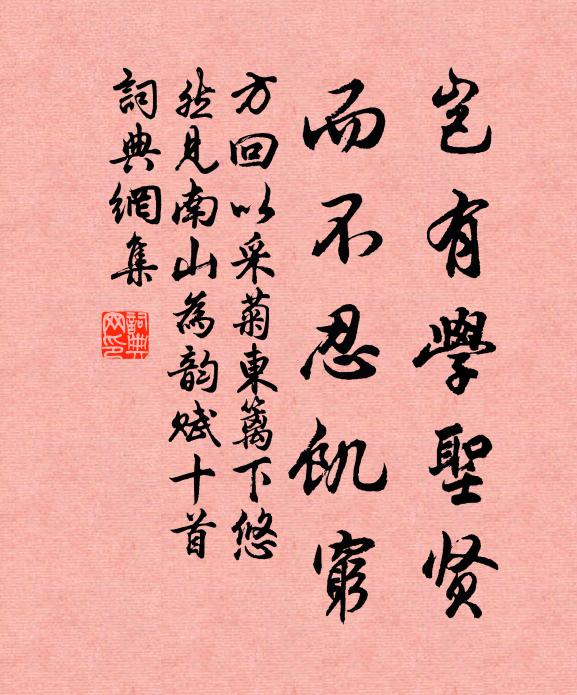 岂有學聖贤
而不忍飢窮
方回以采菊東篱下悠
然見南山為韵赋十首
詞典網集
詞典網印